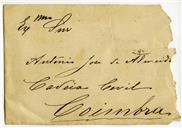 Exmo Snr
António José d'Almeida
Cadeia Civil
Coimbra